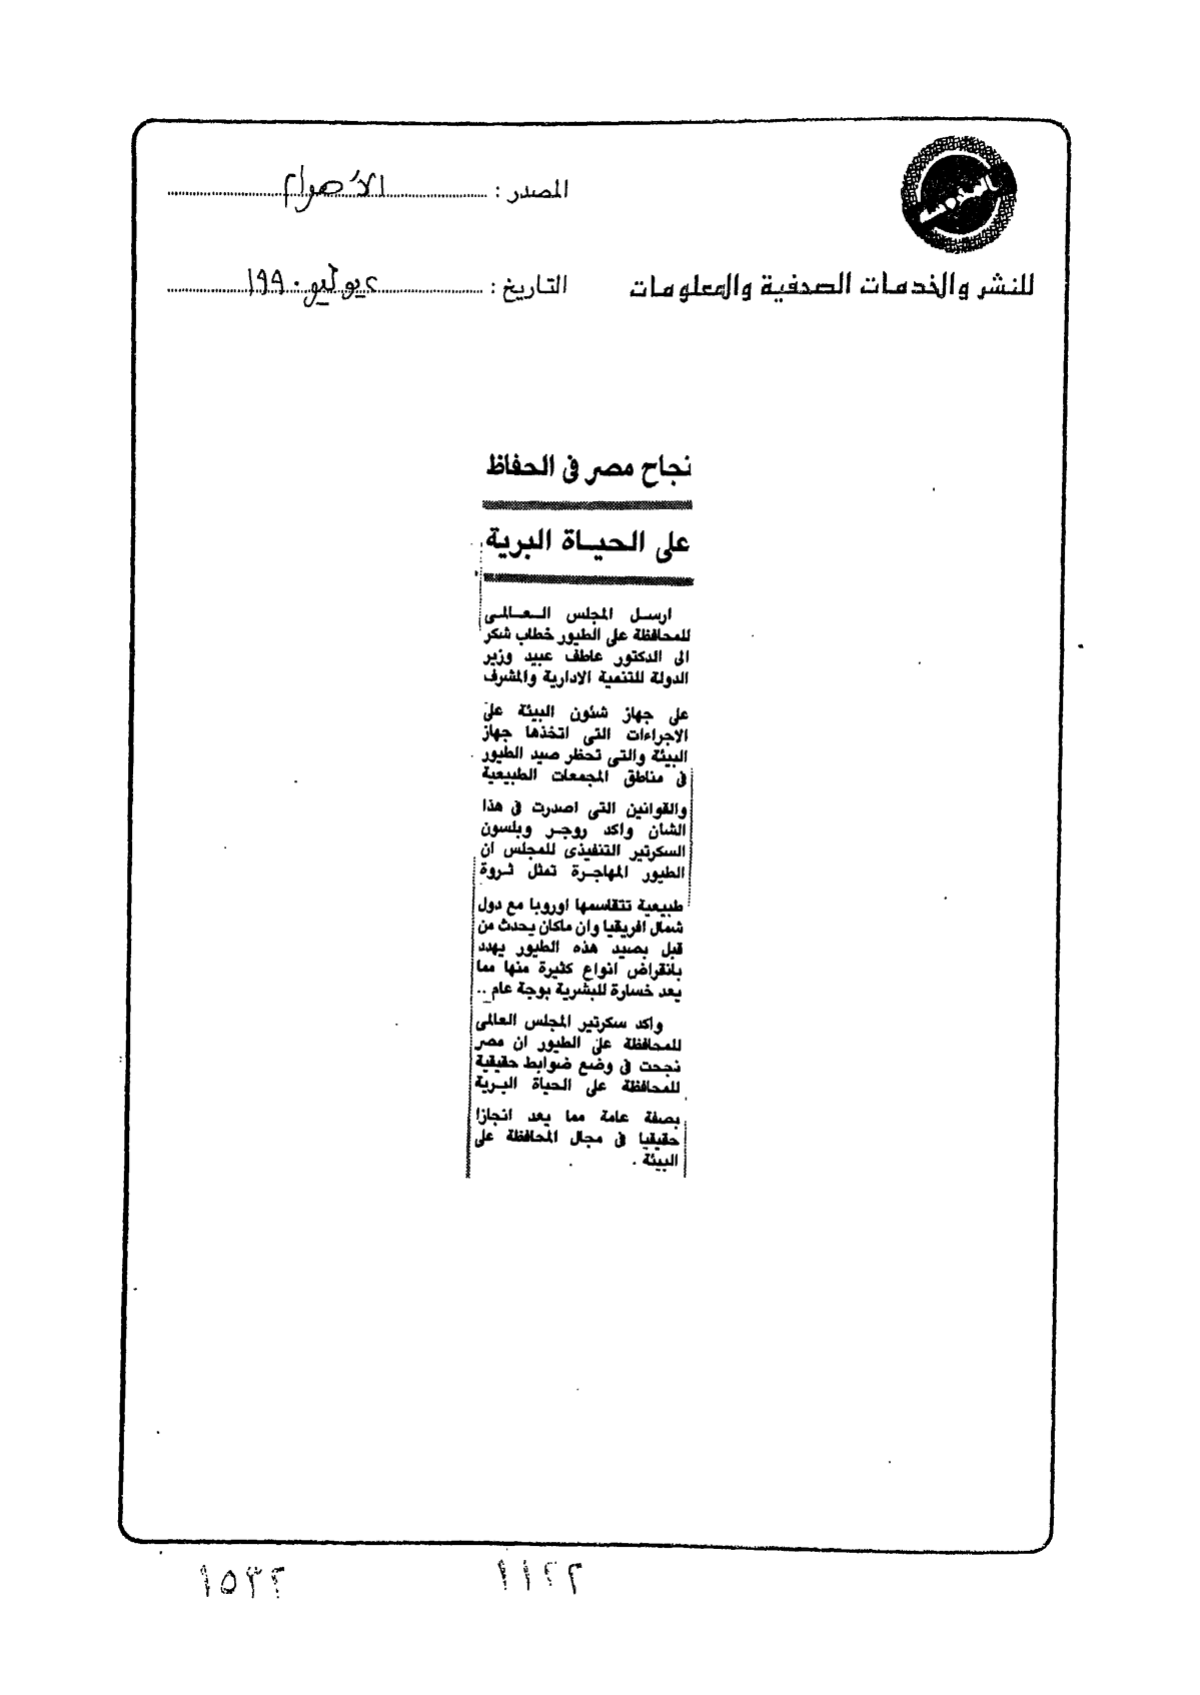 المصدر : الأهرام
التاريخ : ٢ يوليو ١٩٩٠
للنشر والخدمات الصحفية والمعلومات
نجاح مصر فى الحفاظ
على الحيـاة البرية
ارسـل المجلس الـعـالمـى
للمحافظة على الطيور خطاب شكر
الى الدكتور عاطف عبيد وزير
الدولة للتنمية الادارية والمشرف
على جهاز شئون البيئة على
الاجراءات التى اتخذها جهاز
البيئة والتى تحظر صيد الطيور
فى مناطق المجمعات الطبيعية
والقوانين التى اصدرت فى هذا
الشان واكد روجـر ويلسون
السكرتير التنفيذى للمجلس ان
الطيور المهاجـرة تمثل ثـروة
طبيعية تتقاسمها اوروبا مع دول
شمال افريقيا وان ماكان يحدث من
قبل بصيد هذه الطيور يهدد
بانقراض انواع كثيرة منها مما
يعد خسارة للبشرية بوجة عام ..
واكد سكرتير المجلس العالمى
للمحافظة على الطيور ان مصر
نجحت فى وضع ضوابط حقيقية
للمحافظة على الحياة البـرية
بصفة عامة مما يعد انجازا
حقيقيا فى مجال المحافظة على
البيئة .
١١٢٢
١٥٣٢